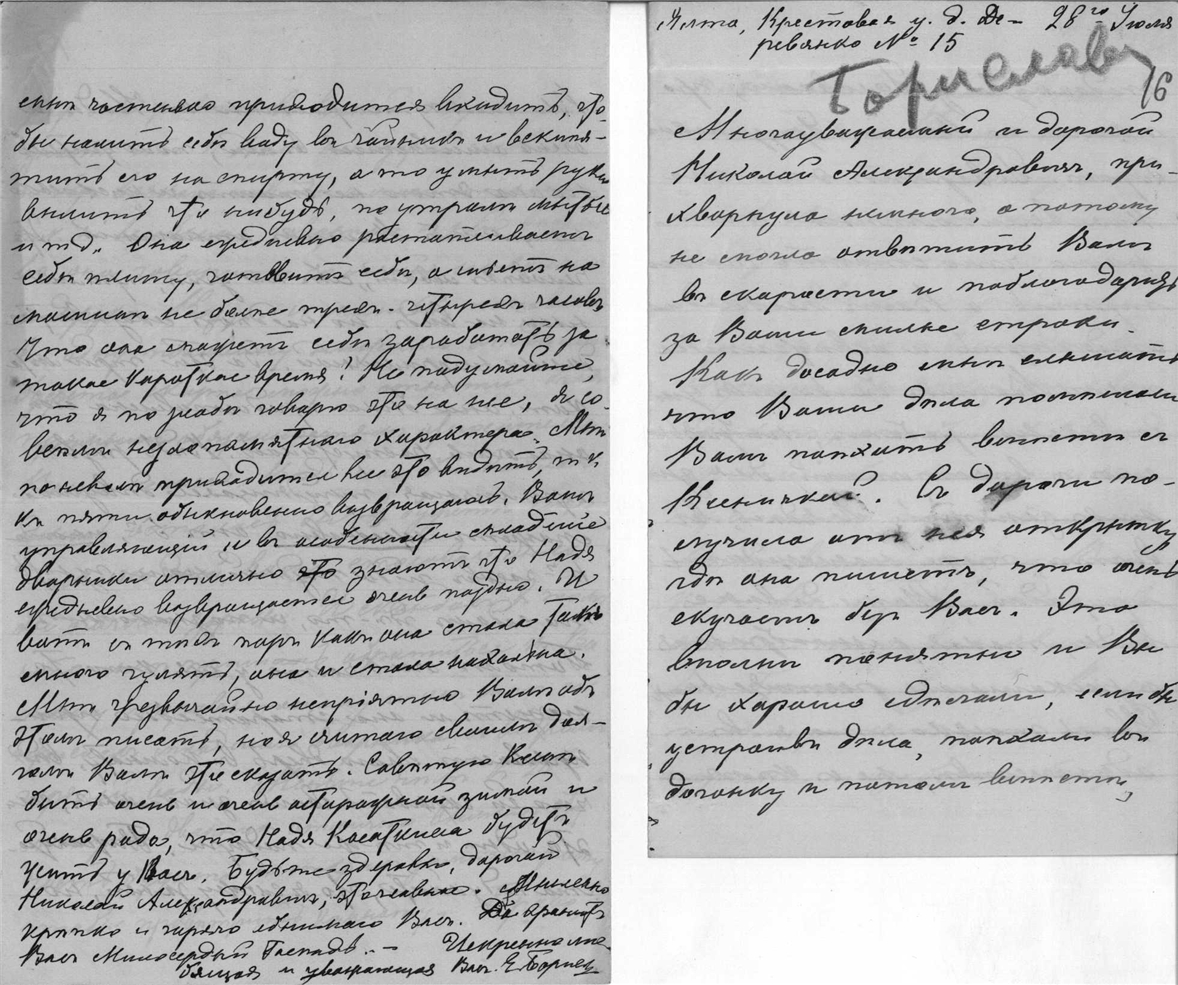 Ялта, Крестовая у. д. Де- 28го Июля
ревянко № 15
Бориславъ
16
Многоуважаемый и дорогой
Николай Александровичъ, при-
хворнула немного, а потому
не могла отвѣтить Вамъ
въ скорости и поблагодарить
за Ваши милые строки.
Какъ досадно мнѣ слышать
что Ваши дѣла помѣшали
Вамъ поѣхать вмѣстѣ съ
Ксеничкой. Съ дороги по-
лучила отъ нея открытку
гдѣ она пишетъ, что очень
скучаетъ безъ Васъ. Это
вполнѣ понятно и Вы
бы хорошо сдѣлали, если бы
устроивъ дѣла, поѣхали въ
догонку и потомъ вмѣстѣ,
мнѣ частенько приходится видить, что
бы налить себѣ воду въ чайникъ и вскипя-
тить его на спирту, а то умыть руки
вылить что нибудь, по утрамъ мытье
и т д. Она ежедневно растапливаетъ
себѣ плиту, готовитъ себѣ, а шьетъ на
машинѣ не болѣе трехъ - четырехъ часовъ
Что она можетъ себѣ заработать за
такое короткое время! Не подумайте,
что я по злобѣ говорю это на нее, я со-
всѣмъ незлопамятнаго характера. Мнѣ
по неволѣ приходится все это видить, т к.
къ пяти обыкновенно возвращаюсь. Вашъ
управляющій и въ особенности младшіе
дворники отлично знаютъ что Надя
ежедневно возвращается очень поздно. И
вотъ съ тѣхъ поръ какъ она стала такъ
много гулять, она и стала нахальна.
Мнѣ чрезвычайно непріятно Вамъ объ
этомъ писать, но я считаю своимъ дол-
гомъ Вамъ это сказать. Совѣтую Ксенѣ
быть очень и очень осторожной зимой и
очень рада, что Надя Касаткина будетъ
жить у Васъ. Будьте здоровы, дорогой
Николай Александровичъ,
крѣпко и горячо обнимаю Васъ. Да хранитъ
Васъ Милосердый Господь. — Искренно лю-
бящая и уважающая Васъ Е. Борис